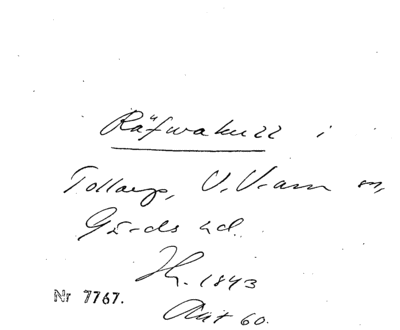 Räfwakull i
Tollarp, V. Vram sn,
Gärds hd.
Th. 1843
Nr 7767.
Akt 60.